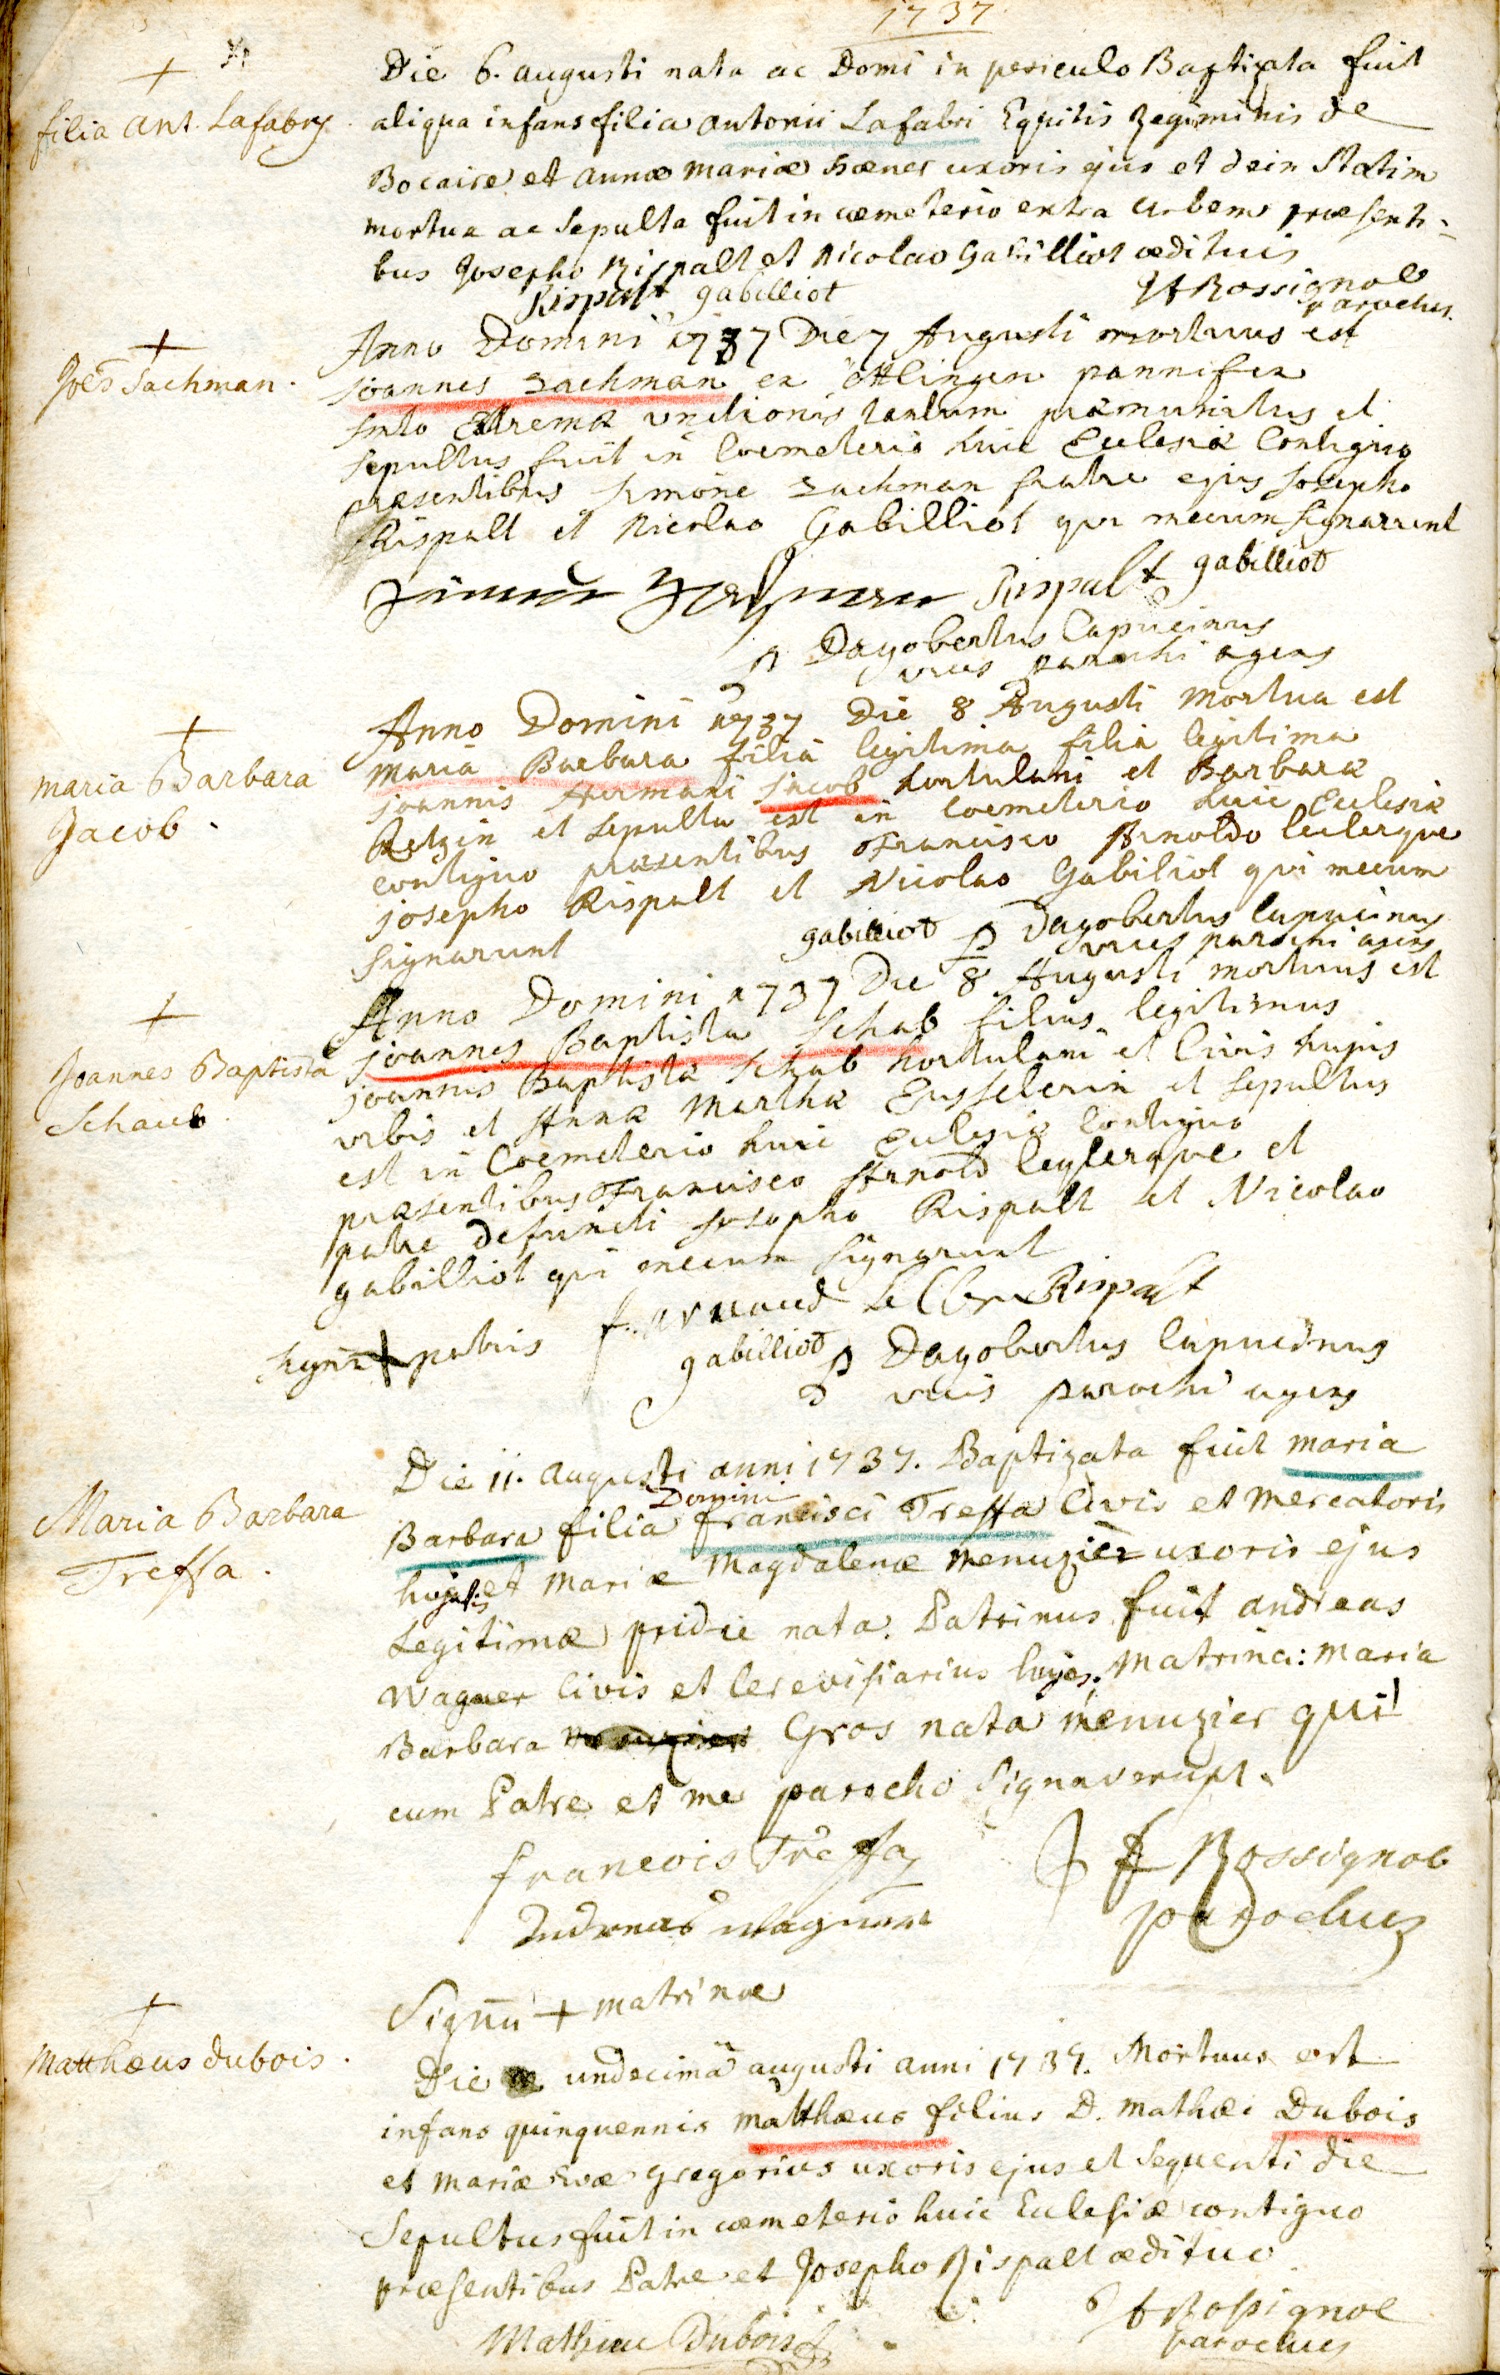 1737
+
filia ant. Lafabry.
Die 6. augusti nata ac Domi in periculo Baptizata fuit
aliqua infans filia antonii Lafabri Equitis Regiminis de
Bocaire et annæ mariæ hæner uxoris ejus et dein Statim
mortua ac Sepulta fuit in cœmeterio extra urbem præsenti-
bus Josepho Rispalt et Nicolao Gabilliot ædituis
Rispalt gabilliot
Rossignol
parochus.
+
Joēs Sachman.
Anno Domini 1737 Die 7 Augusti mortuus est
joannes Sachman ex ottlingen pannifex
Sto Extremæ unctionis tantum præmunitus et
sepultus fuit in Coemeterio huic Eclesiæ Contiguo
præsentibus simone Sachman fratre ejus Josepho
Rispalt et Nicolao Gabilliot qui mecum signarunt
Rispalt gabilliot
p Dagobertus Capucinus
vices parochi agens
+
maria Barbara
Jacob.
Anno Domini 1737 Die 8 Augusti mortua est
maria Barbara filia legitima filia legitima
joannis hermani jacob hortulani et Barbaræ
Retzin et sepulta est in Coemeterio huic Eclesiæ
contiguo præsentibus Francisco Arnoldo leclerque
josepho Rispalt et Nicolao Gabiliot qui mecum
signarunt
gabilliot p Dagobertus Capucinus
vices parochi agens
+
Joannes Baptista
Schaub.
Anno Domini 1737 Die 8 Augusti mortuus est
joannes Baptista Schab filius legitimus
joannis Baptistæ Schab hortulani et Civis hujus
urbis et Annæ Marthæ Eusselerin et sepultus
est in Coemeterio huic Eclesiæ Contiguo
præsentibus Francisco Arnold leclerque et
patre defuncti josepho Rispalt et Nicolao
gabilliot qui mecum signarunt
f. arnaud le Cler Rispalt
sign + patris
gabilliot p Dagobertus Capucinus
vices parochi agens
Maria Barbara
Treffa.
Die 11. augusti anni 1737. Baptizata fuit maria
Barbara filia Domini francisci Treffa Civis et mercatoris
hujatis et mariæ Magdalenæ menuzier uxoris ejus
Legitimæ pridie nata. Patrinus fuit andreas
Wagner Civis et Cerevisiarius hujas. Matrina: maria
Barbara Gros nata menuzier qui
cum Patre et me parocho Signaverunt.
francois Treffa
Rossignol
parochus
Andreas Wagner
Signū + matrinæ
+
Matthæus dubois.
Die undecimâ augusti anni 1737. Mortuus est
infans quinquennis matthæus filius D. mathæi Dubois
et mariæ evæ gregorius uxoris ejus et Sequenti die
Sepultus fuit in cœmeterio huic Eclesiæ contiguo
præsentibus Patre et Josepho Rispalt ædituo
Mathieu Dubois
Rossignol
parochus